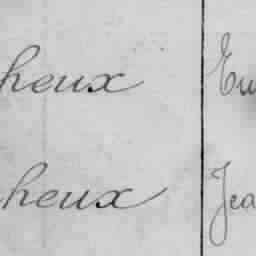 heux Eu
heux Jea